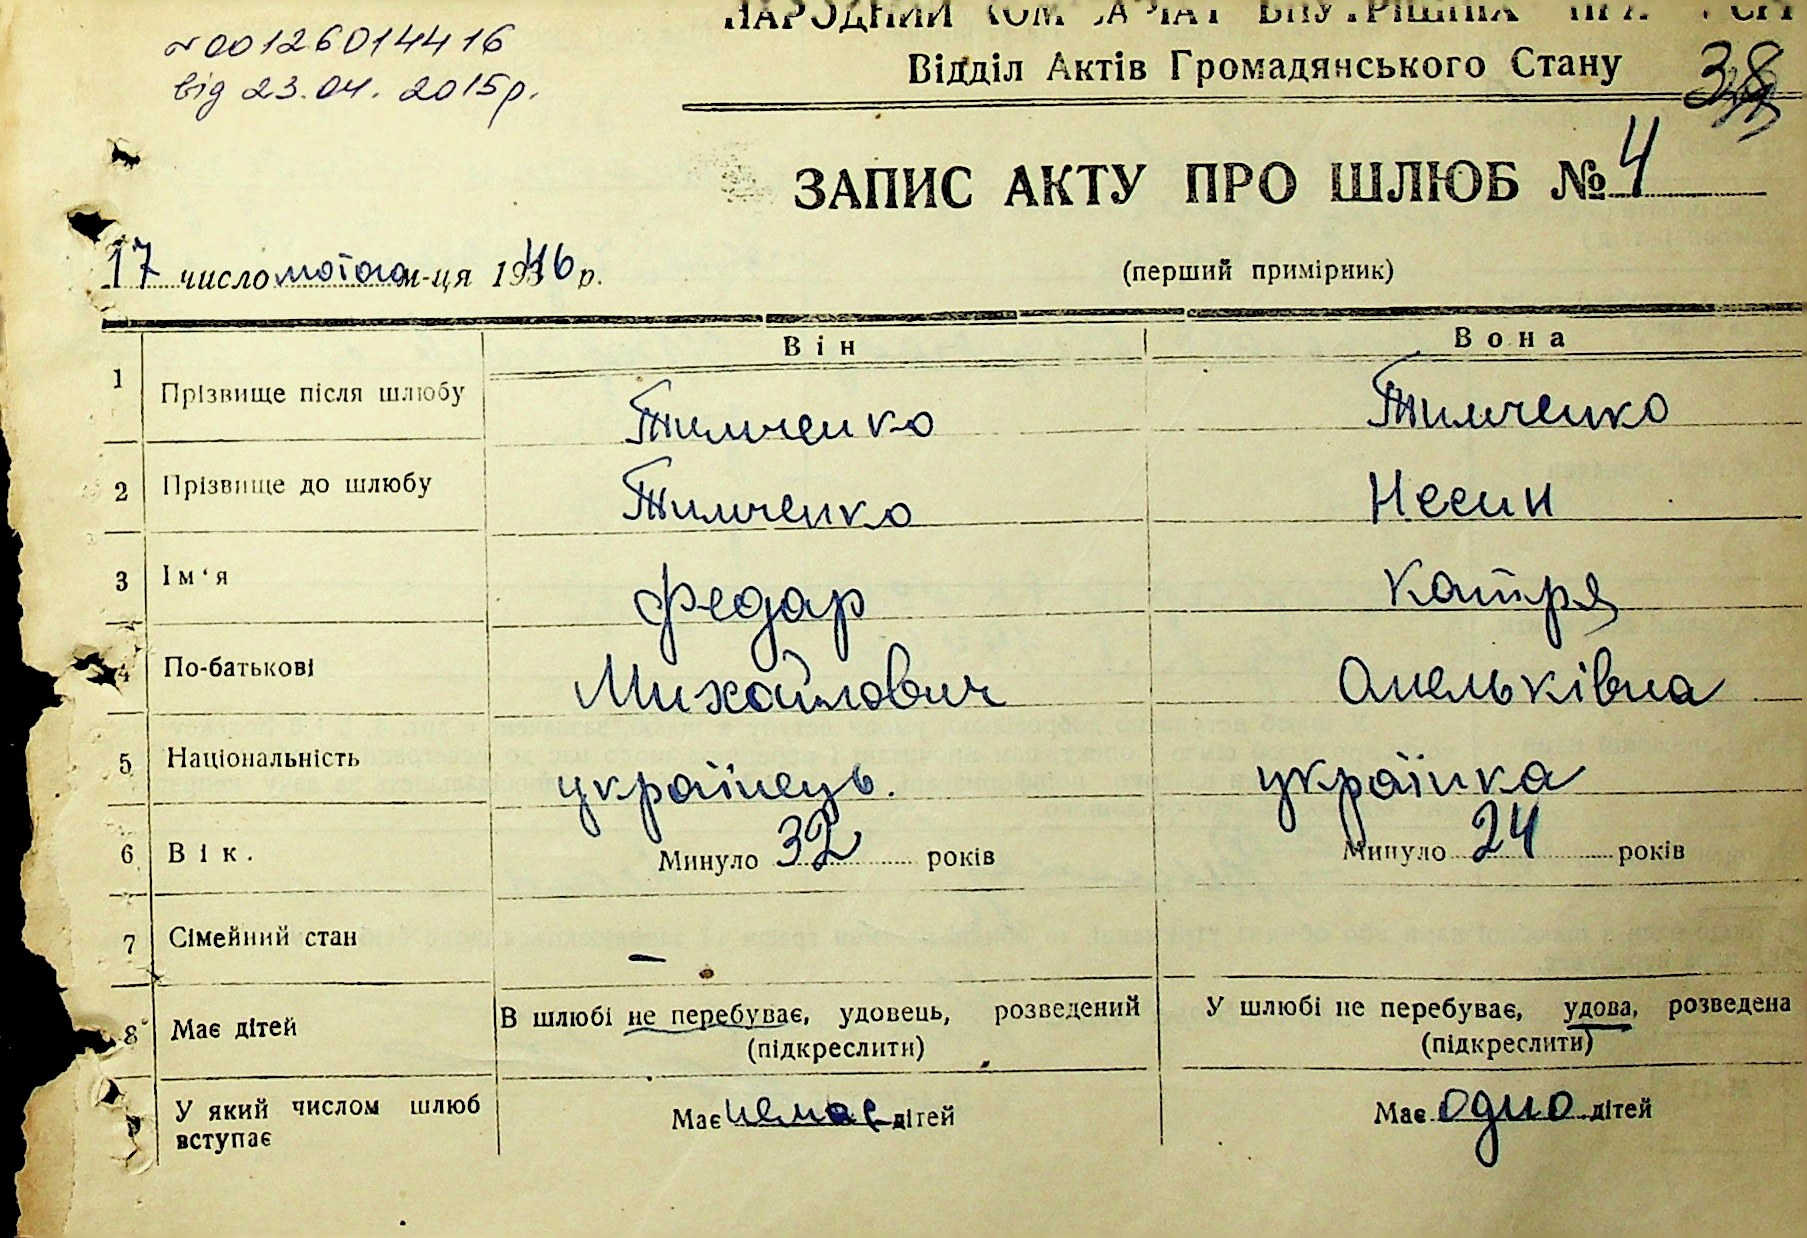 №00126014416
від 23.04.2015р.
НАРОДНИЙ
Відділ Актів Громадянського Стану
38
ЗАПИС АКТУ ПРО ШЛЮБ № 4
17 число лютого м-ця 1946 р.
(перший примірник)
Він Вона
1 Прізвище після шлюбу Тимченко Тимченко
2 Прізвище до шлюбу Тимченко Несин
3 Ім'я Федар Катря
4 По-батькові Михайлович Омельківна
5 Національність українець. українка
6 Вік. Минуло 32 років Минуло 24 років
7 Сімейний стан —
8 Має дітей В шлюбі не перебуває, удовець, розведений У шлюбі не перебуває, удова, розведена
(підкреслити) (підкреслити)
9 У який числом шлюб вступає Має немає дітей Має одно дітей